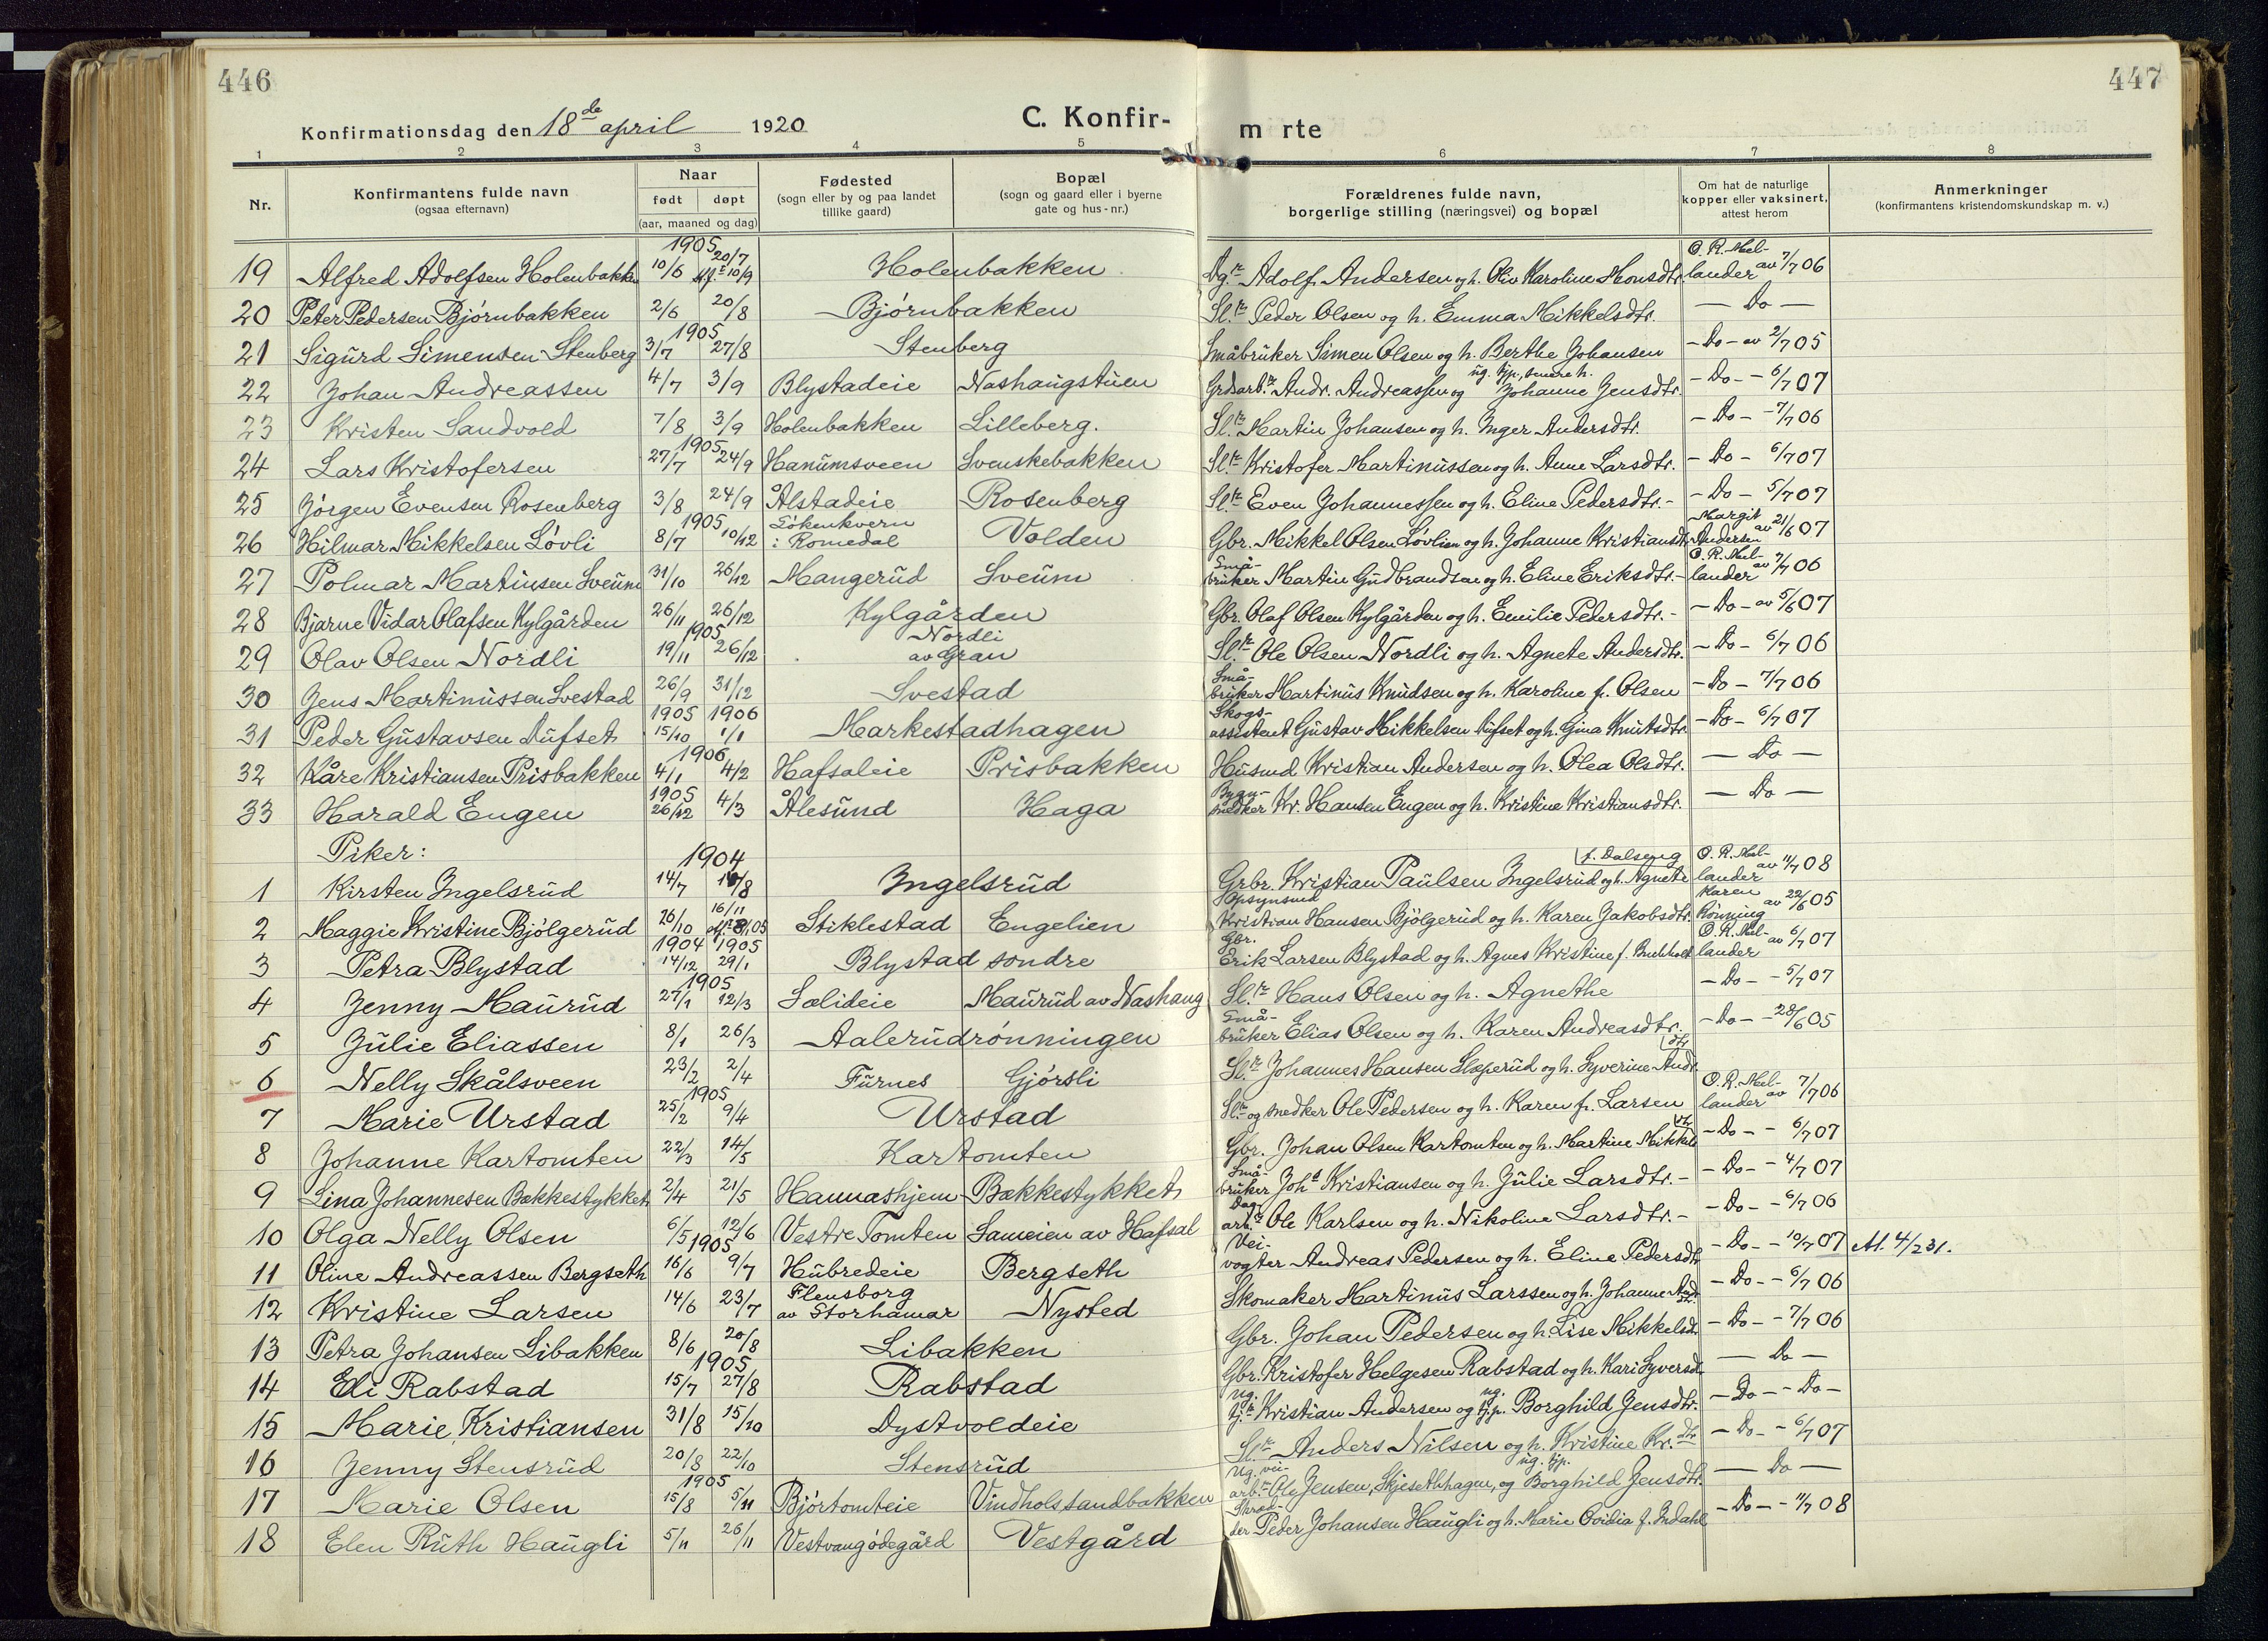 446
447
Konfirmationsdag den 18de april 1920
C. Konfir- m rte
1 2 3 4 5 6 7 8
Nr. Konfirmantens fulde navn (ogsaa efternavn) Naar født døpt (aar, maaned og dag) Fødested (sogn eller by og paa landet tillike gaard) Bopæl (sogn og gaard eller i byerne gate og hus-nr.) Forældrenes fulde navn, borgerlige stilling (næringsvei) og bopæl Om hat de naturlige kopper eller vaksinert, attest herom Anmerkninger (konfirmantens kristendomskundskap m. v.)
19 Alfred Adolfsen Holenbakken 1905 10/6 20/7 10/9 Holenbakken Dgr Adolf Andersen og h. Oliv Karoline Monsdtr. O. R. Mellander av 7/7 06
20 Peter Pedersen Bjørnbakken 2/6 20/8 Bjørnbakken Slr Peder Olsen og h. Emma Mikkelsdtr. — Do —
21 Sigurd Simensen Stenberg 1905 3/7 27/8 Stenberg Småbruker Simen Olsen og h. Berthe Johansen - Do - av 2/7 05
22 Johan Andreassen 4/7 3/9 Blystadeie Nashaugstuen Grdsarbr Andr. Andreassen og ug. tjp., senere h. Johanne Jensdtr. - Do - - 6/7 07
23 Kristen Sandvold 7/8 3/9 Holenbakken Lilleberg. Slr Martin Johansen og h. Inger Andersdtr. - Do - - 7/7 06
24 Lars Kristofersen 1905 27/7 24/9 Hanumsveen Svenskebakken Slr Kristofer Martinussen og h. Anne Larsdtr. - Do - 6/7 07
25 Jørgen Evensen Rosenberg 3/8 24/9 Ålstadeie Rosenberg Slr Even Johannessen og h. Eline Pedersdtr. - Do - 5/7 07
26 Hilmar Mikkelsen Løvli 1905 8/7 10/12 Tøkenkvern i Romedal Volden Gbr. Mikkel Olsen Løvlien og h. Johanne Kristiansdtr. Margit Andersen av 21/6 07
27 Polmar Martinsen Sveum 31/10 26/12 Mangerud Sveum Småbruker Martin Gudbrandsen og h. Eline Eriksdtr. - O. R. Mellander av 7/7 06
28 Bjarne Vidar Olafsen Kylgården 26/11 26/12 Kylgården Gbr. Olaf Olsen Kylgården og h. Emilie Pedersdtr. - - Do - av 5/6 07
29 Olav Olsen Nordli 1905 19/11 26/12 Nordli av Gran Slr Ole Olsen Nordli og h. Agnete Andersdtr. - Do - 6/7 06
30 Jens Martinussen Svestad 26/9 31/12 Svestad Småbruker Martinus Knudsen og h. Karoline f. Olsen - Do - 7/7 06
31 Peder Gustavsen Aufset 1905 15/10 1906 1/1 Markestadhagen Skogsassistent Gustav Mikkelsen Aufset og h. Gina Knutsdtr. - Do - 6/7 07
32 Kåre Kristiansen Prisbakken 1906 4/1 4/2 Hafsaleie Prisbakken Husmd Kristian Andersen og h. Olea Olsdtr. — Do —
33 Harald Engen 1905 26/12 4/3 Ålesund Haga Bygnsnedker Kr. Hansen Engen og h. Kristine Kristiansdtr. — Do —
Piker:
1 Kirsten Ingelsrud 1904 14/7 14/8 Ingelsrud Grbr. Kristian Paulsen Ingelsrud og h. Agnete f. Dalseng O. R. Mellander av 11/7 08
2 Maggie Kristine Bjølgerud 26/10 16/11 05 Stiklestad Engelien Opsynsmd Kristian Hansen Bjølgerud og h. Karen Jakobsdtr. Karen Rønning av 22/6 05
3 Petra Blystad 1904 14/12 1905 29/1 Blystad søndre Gbr. Erik Larsen Blystad og h. Agnes Kristine f. Buchholdt O. R. Mellander av 6/7 07
4 Jenny Maurud 1905 27/1 12/3 Sælideie Maurud av Nashaug Slr Hans Olsen og h. Agnethe - Do - - 5/7 07
5 Julie Eliassen 8/1 26/3 Aalerudrønningen Småbruker Elias Olsen og h. Karen Andreasdtr. - Do - - 28/6 05
6 Nelly Skålsveen 23/2 2/4 Furnes Gjørsli Slr Johannes Hansen Slæperud og h. Syverine Andrdtr
7 Marie Urstad 1905 25/2 9/4 Urstad Slr og snedker Ole Pedersen og h. Karen f. Larsen O. R. Mellander av 7/7 06
8 Johanne Kartomten 22/3 14/5 Kartomten Gbr. Johan Olsen Kartomten og h. Martine Mikkels dtr - Do - - 6/7 07
9 Lina Johannesen Bækkestykket 2/4 21/5 Hannashjem Bækkestykket Småbruker Johs Kristiansen og h. Julie Larsdtr. - - Do - - 4/7 07
10 Olga Nelly Olsen 6/5 12/6 Vestre Tomten Sameien av Hafsal Dagarbr Ole Karlsen og h. Nikoline Larsdtr. - - Do - - 6/7 06
11 Oline Andreassen Bergseth 1905 16/6 9/7 Hubredeie Bergseth Veivogter Andreas Pedersen og h. Eline Pedersdtr - Do - - 10/7 07 At. 4/2 31.
12 Kristine Larsen 14/6 23/7 Flensborg av Storhamar Nysted Skomaker Martinus Larssen og h. Johanne Anddtr. - Do - - 6/7 06
13 Petra Johansen Libakken 8/6 20/8 Libakken Gbr. Johan Pedersen og h. Lise Mikkelsd. - Do - - 7/7 06
14 Eli Rabstad 1905 15/7 27/8 Rabstad Gbr. Kristofer Helgesen Rabstad og h. Kari Syversd — Do —
15 Marie Kristiansen 31/8 15/10 Dystvoldeie ug. tjr Kristian Andersen og ug. tjp. Borghild Jensdtr. - Do - - Do -
16 Jenny Stensrud 20/8 22/10 Stensrud Slr Anders Nilsen og h. Kristine Kr. dtr - Do - - 6/7 07
17 Marie Olsen 1905 15/8 5/11 Bjørtomteie Vindholssandbakken Ug. veiarbr Ole Jensen, Skjesethhagen, og ug. tjp. Borghild Jensdtr. — Do —
18 Elen Ruth Haugli 5/11 26/11 Vestvangødegård Vestgård Skrædder Peder Johansen Haugli og h. Marie Ovidia f. Indahl - Do - - 11/7 08